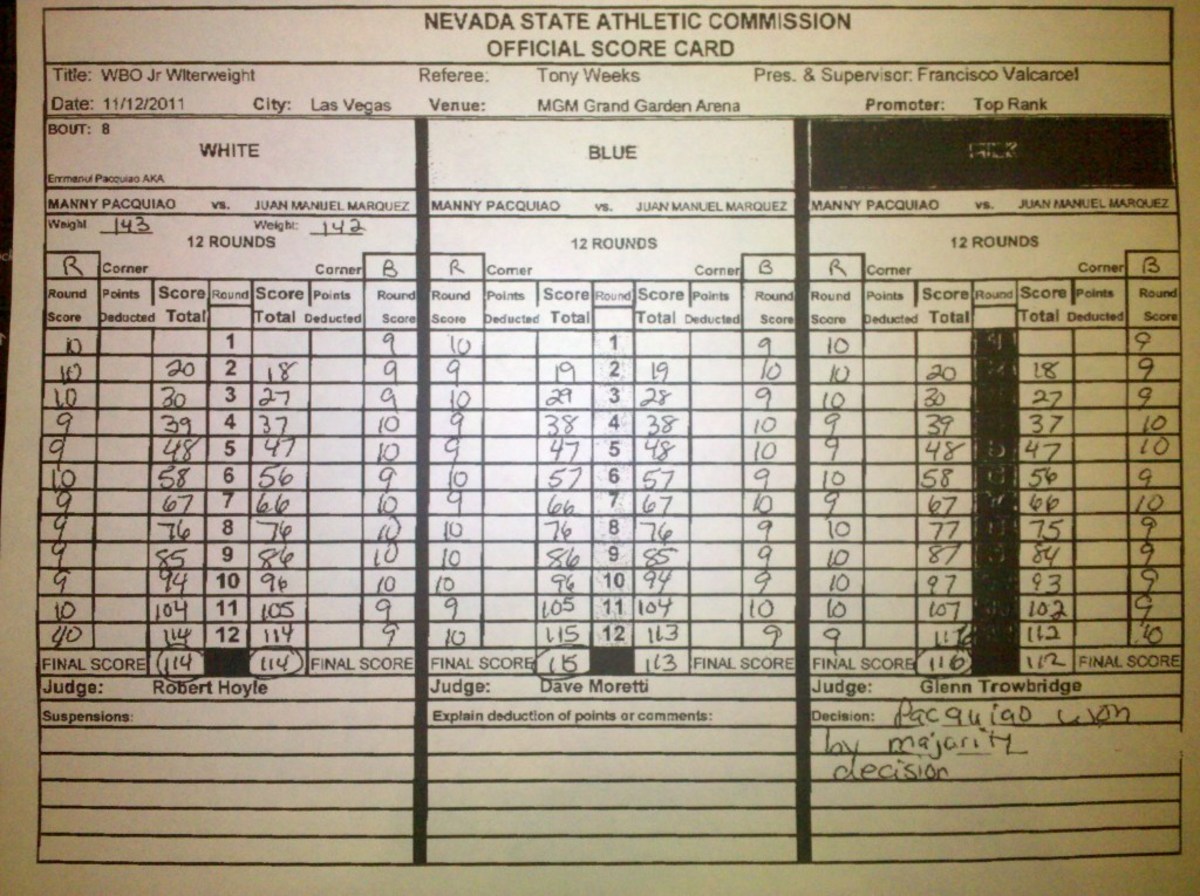 NEVADA STATE ATHLETIC COMMISSION
OFFICIAL SCORE CARD
Title: WBO Jr Wlterweight Referee: Tony Weeks Pres. & Supervisor: Francisco Valcarcel
Date: 11/12/2011 City: Las Vegas Venue: MGM Grand Garden Arena Promoter: Top Rank
BOUT: 8
WHITE BLUE
Emmanul Pacquiao AKA
MANNY PACQUIAO vs. JUAN MANUEL MARQUEZ MANNY PACQUIAO vs. JUAN MANUEL MARQUEZ MANNY PACQUIAO vs. JUAN MANUEL MARQUEZ
Weight 143 Weight: 142
12 ROUNDS 12 ROUNDS 12 ROUNDS
R Corner Corner B R Corner Corner B R Corner Corner B
Round Points Score Round Score Points Round Round Points Score Round Score Points Round Round Points Score Round Score Points Round
Score Deducted Total Total Deducted Score Score Deducted Total Total Deducted Score Score Deducted Total Total Deducted Score
10 1 9 10 1 9 10 9
10 20 2 18 9 9 19 2 19 10 10 20 18 9
10 30 3 27 9 10 29 3 28 9 10 30 27 9
9 39 4 37 10 9 38 4 38 10 9 39 37 10
9 48 5 47 10 9 47 5 48 10 9 48 47 10
10 58 6 56 9 10 57 6 57 9 10 58 56 9
9 67 7 66 10 9 66 7 67 10 9 67 66 10
9 76 8 76 10 10 76 8 76 9 10 77 75 9
9 85 9 86 10 10 86 9 85 9 10 87 84 9
9 94 10 96 10 10 96 10 94 9 10 97 93 9
10 104 11 105 9 9 105 11 104 10 10 107 102 9
10 114 12 114 9 10 115 12 113 9 9 116 112 10
FINAL SCORE 114 114 FINAL SCORE FINAL SCORE 115 113 FINAL SCORE FINAL SCORE 116 112 FINAL SCORE
Judge: Robert Hoyle Judge: Dave Moretti Judge: Glenn Trowbridge
Suspensions: Explain deduction of points or comments: Decision: Pacquiao won
by majority
decision